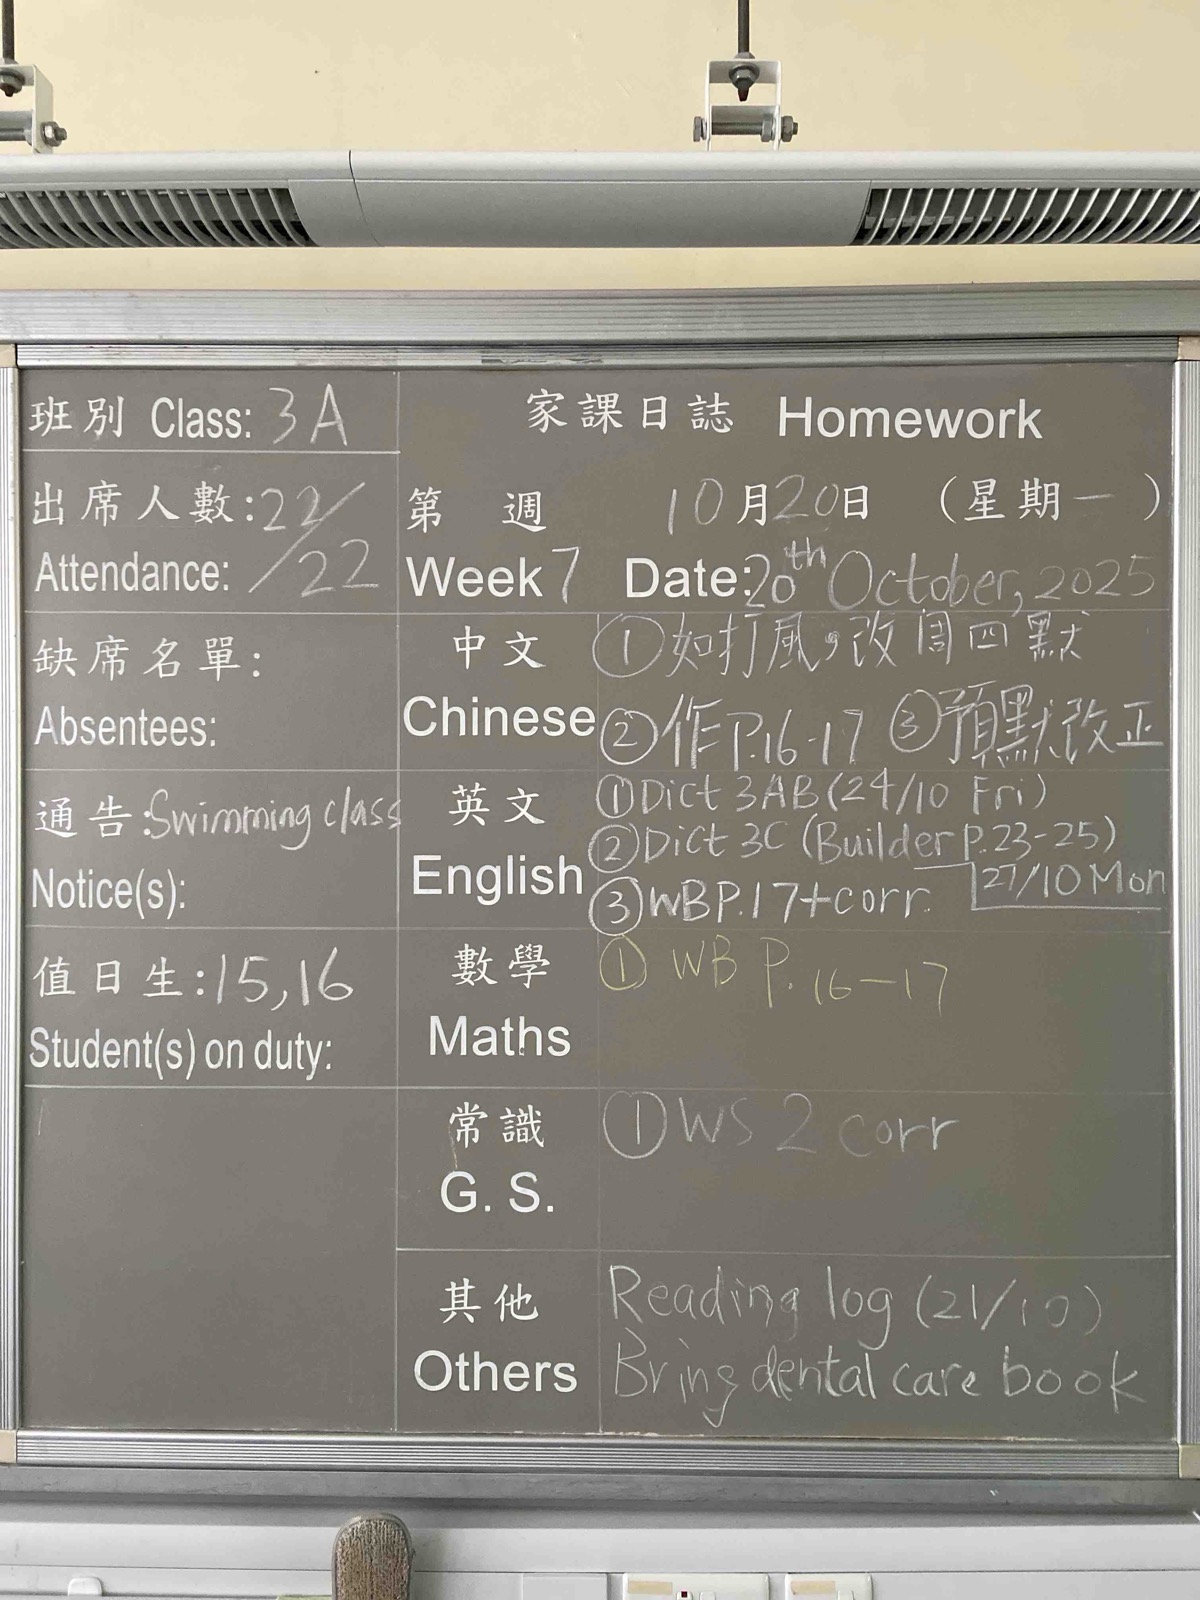 班別 Class: 3A
出席人數:22/
Attendance: /22
缺席名單:
Absentees:
通告:Swimming class
Notice(s):
值日生:15,16
Student(s) on duty:
家課日誌 Homework
第 週 10月20日 (星期一)
Week 7 Date:20th October, 2025
中文
Chinese
① 如打風,改周四默
② 作P.16-17 ③ 預默改正
英文
English
① Dict 3AB (24/10 Fri)
② Dict 3C (Builder P.23-25)
27/10 Mon
③ WB P.17+corr.
數學
Maths
① WB P. 16-17
常識
G. S.
① WS 2 corr
其他
Others
Reading log (21/10)
Bring dental care book